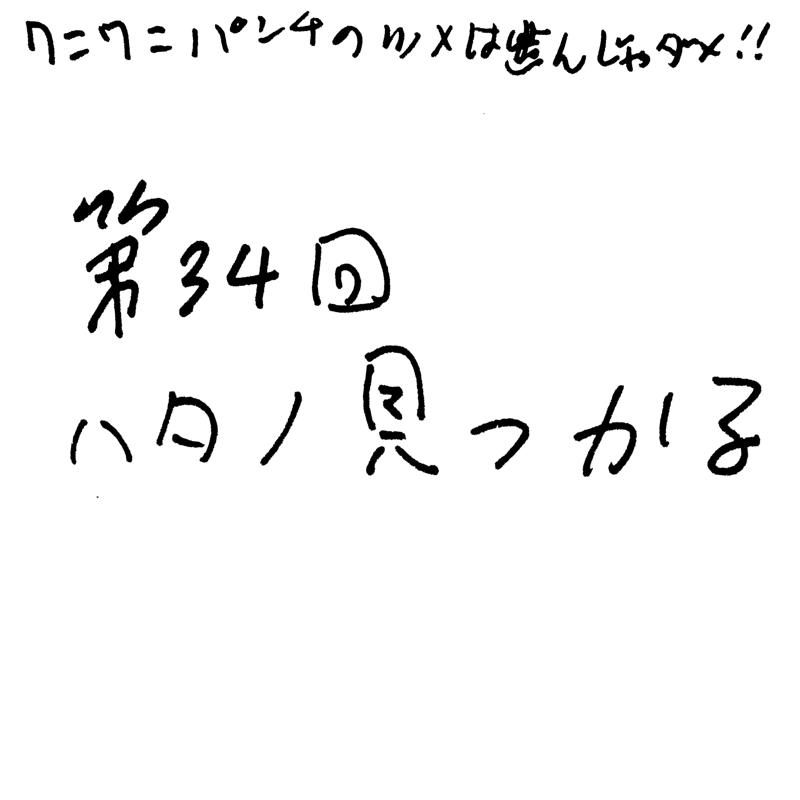 ワニワニパンチのツメは噛んじゃダメ!!
第34回
ハタノ見つかる